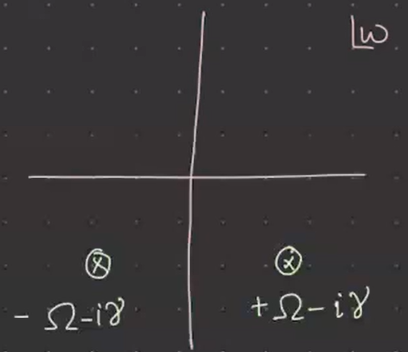 ω
- Ω-iγ
+Ω-iγ